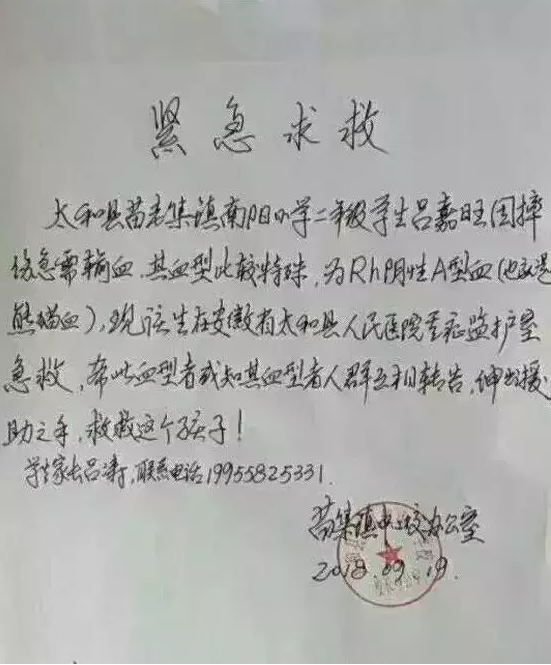 紧急求救
太和县苗老集镇南阳小学二年级学生吕嘉旺因摔
伤急需输血，其血型比较特殊，为Rh阴性A型血（也就是
熊猫血），现该生在安徽省太和县人民医院重症监护室
急救，希此血型者或知其血型者人群互相转告，伸出援
助之手，救救这个孩子！
学生家长吕涛，联系电话19955825331.
苗集镇中心校办公室
2018.09.19.